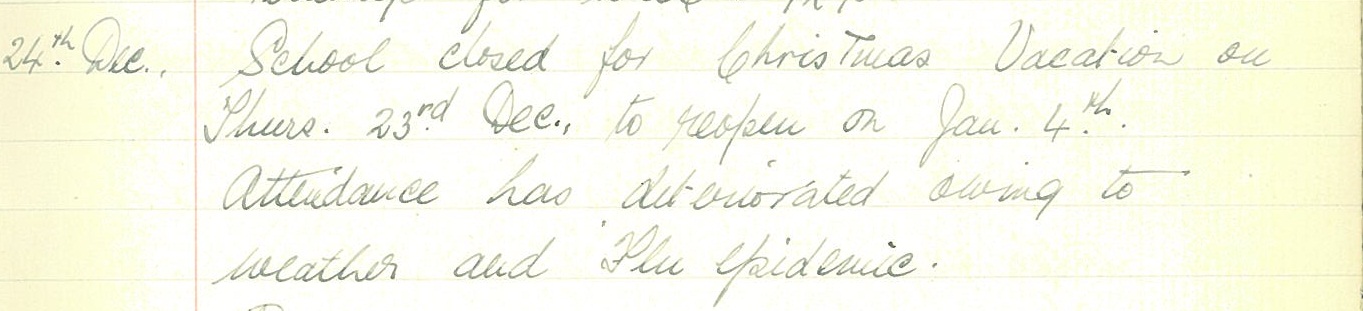 24th Dec., School closed for Christmas Vacation on
Thurs. 23rd Dec., to reopen on Jan. 4th.
Attendance has deteriorated owing to
weather and 'Flu epidemic.